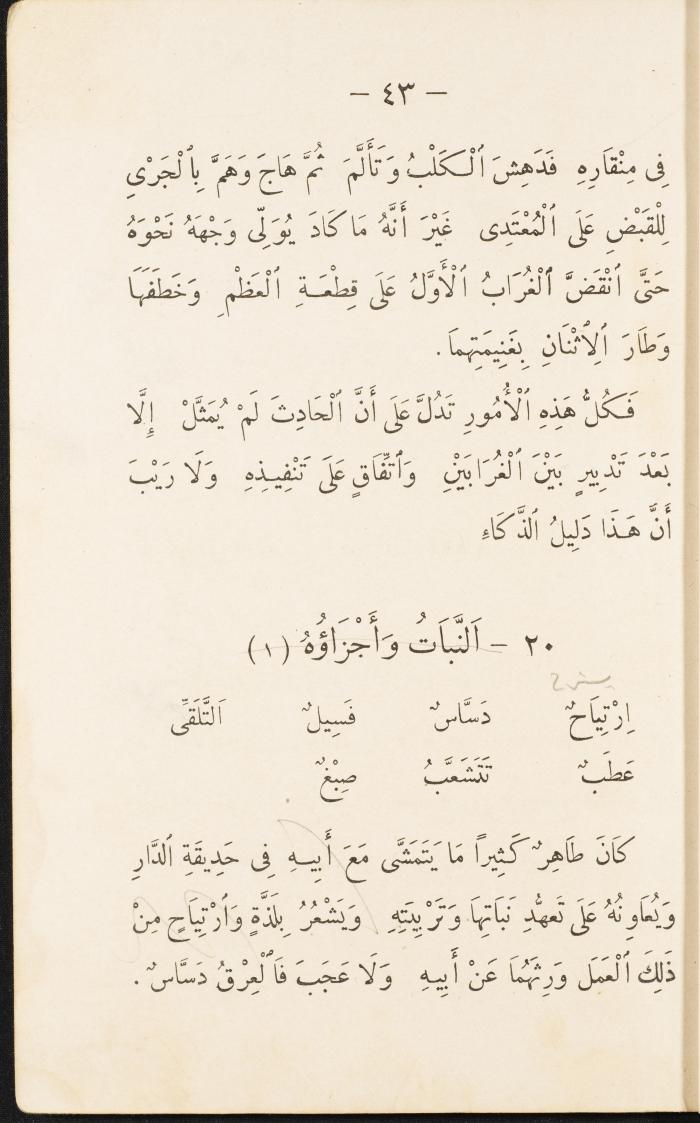 – ٤٣ –
فِى مِنْقَارِهِ فَدَهِشَ ٱلْكَلْبُ وَتَأَلَّمَ ثُمَّ هَاجَ وَهَمَّ بِٱلْجَرْىِ
لِلْقَبْضِ عَلَى ٱلْمُعْتَدِى غَيْرَ أَنَّهُ مَا كَادَ يُوَلِّى وَجْهَهُ نَحْوَهُ
حَتَّى ٱنْقَضَّ ٱلْغُرَابُ ٱلْأَوَّلُ عَلَى قِطْعَةِ ٱلْعَظْمِ وَخَطَفَهَا
وَطَارَ ٱلِٱثْنَانِ بِغَنِيمَتِهِمَا .
فَكُلُّ هَذِهِ ٱلْأُمُورِ تَدُلُّ عَلَى أَنَّ ٱلْحَادِثَ لَمْ يُمَثَّلْ إِلَّا
بَعْدَ تَدْبِيرٍ بَيْنَ ٱلْغُرَابَيْنِ وَٱتِّفَاقٍ عَلَى تَنْفِيذِهِ وَلَا رَيْبَ
أَنَّ هَذَا دَلِيلُ ٱلذَّكَاءِ
٢٠ – اَلنَّبَاتُ وَأَجْزَاؤُهُ (١)
اِرْتِيَاحٌ دَسَّاسٌ فَسِيلٌ اَلتَّلَقِّى
عَطَبٌ تَتَشَعَّبُ صِبْغٌ
كَانَ طَاهِرٌ كَثِيراً مَا يَتَمَشَّى مَعَ أَبِيهِ فِى حَدِيقَةِ ٱلدَّارِ
وَيُعَاوِنُهُ عَلَى تَعَهُّدِ نَبَاتِهَا وَتَرْبِيَتِهِ وَيَشْعُرُ بِلَذَّةٍ وَٱرْتِيَاحٍ مِنْ
ذَلِكَ ٱلْعَمَل وَرِثَهُمَا عَنْ أَبِيهِ وَلَا عَجَبَ فَٱلْعِرْقُ دَسَّاسٌ .